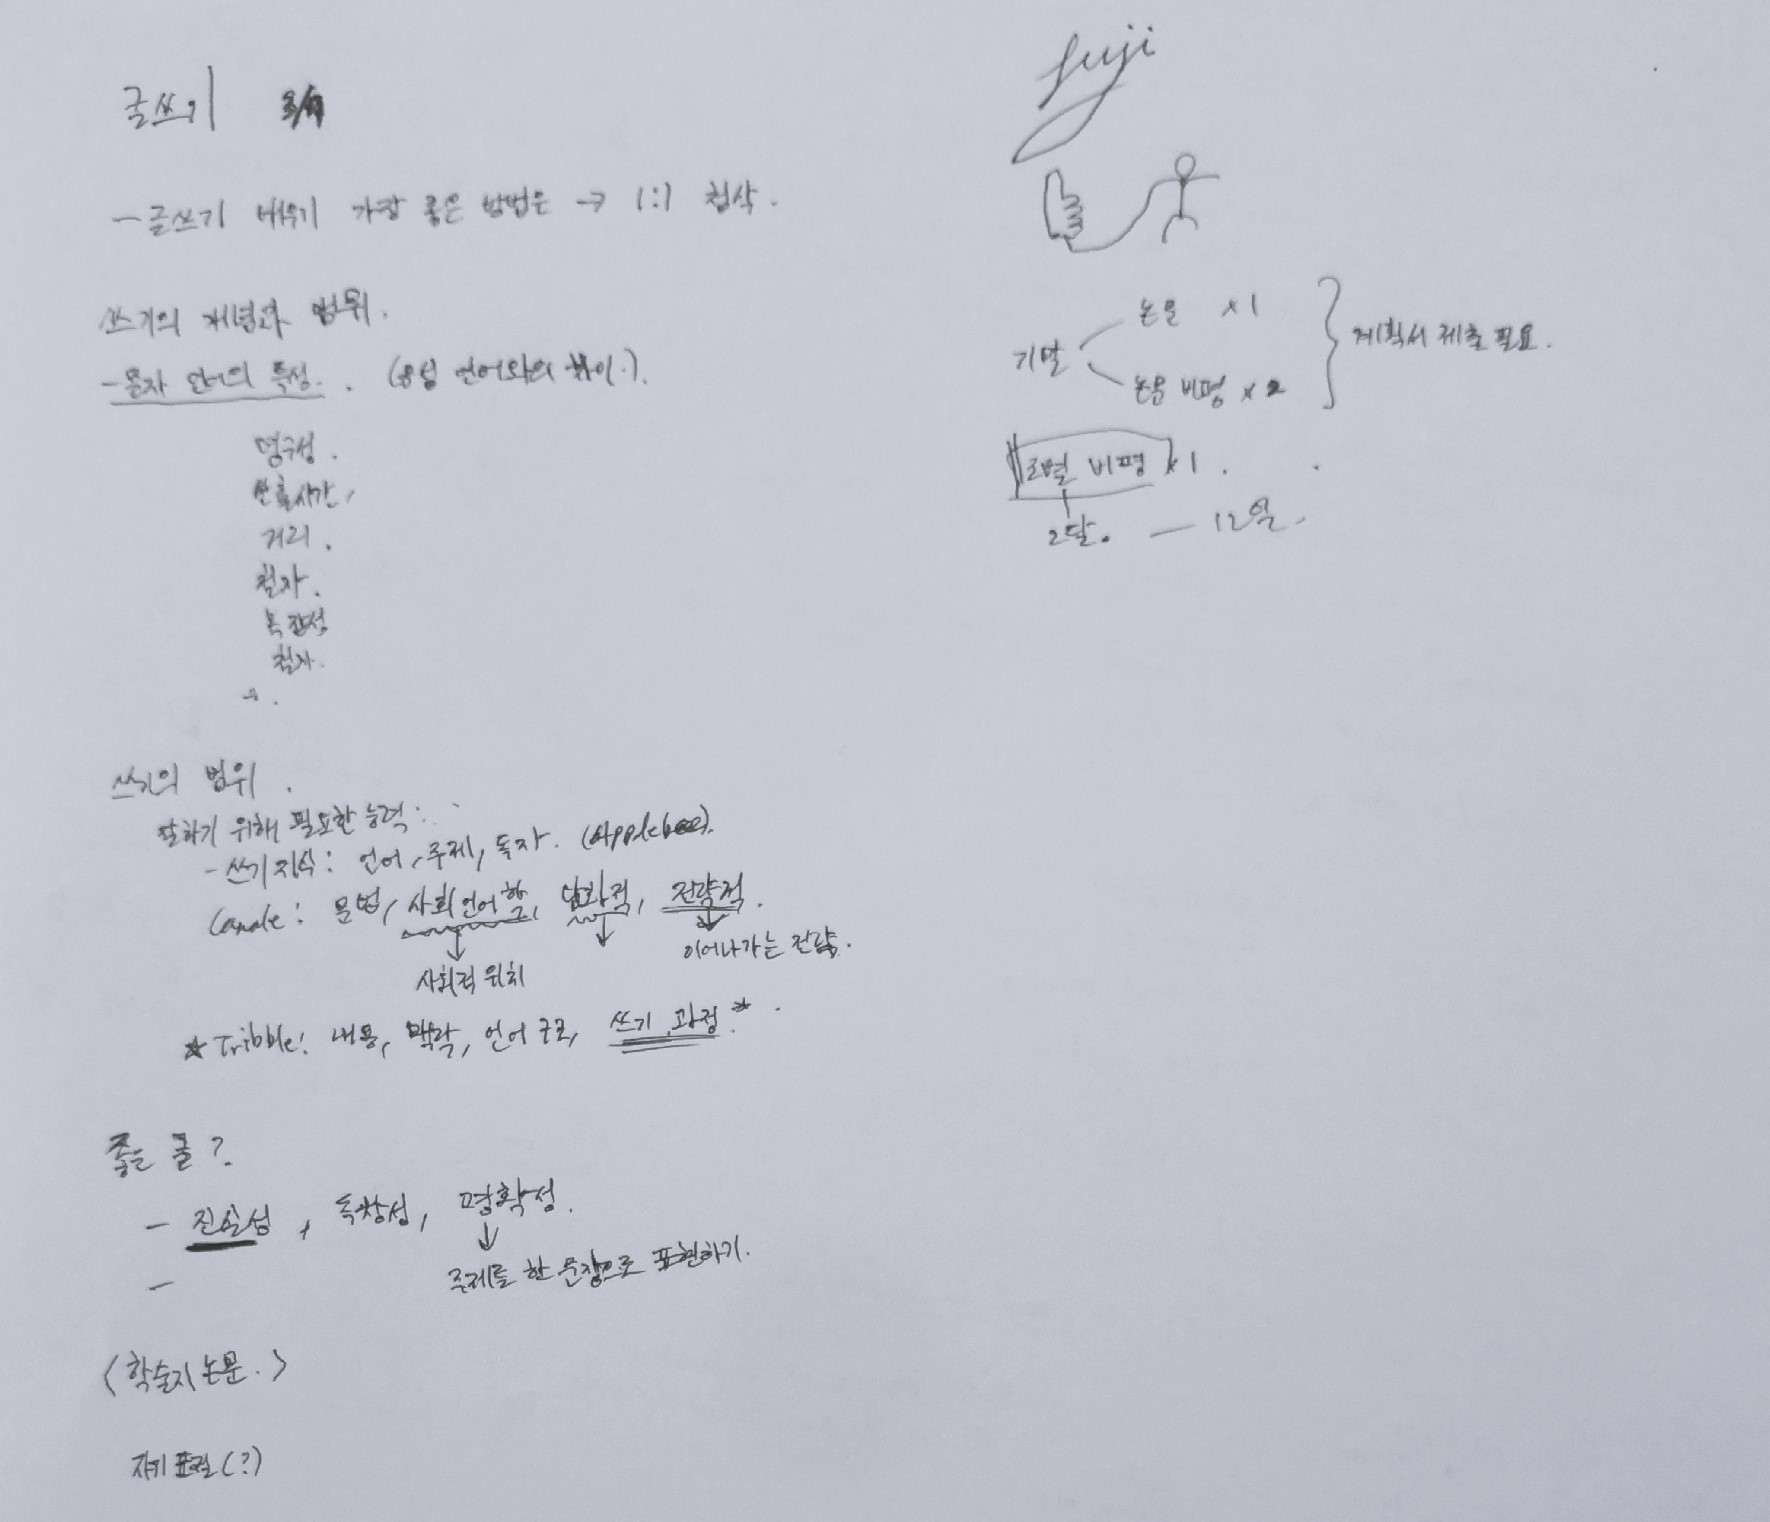 글쓰기
- 글쓰기 배우기 가장 좋은 방법은 → 1:1 첨삭.
쓰기의 개념과 범위.
- 문자 언어의 특성. (음성 언어와의 차이.).
영구성.
산출시간,
거리.
철자.
복잡성
철자.
쓰기의 범위.
잘하기 위해 필요한 능력:
- 쓰기지식: 언어, 주제, 독자. (Applebee).
Canale: 문법, 사회언어학, 담화적, 전략적.
↓ ↓ ↓
이어나가는 전략.
사회적 위치
* Tribble: 내용, 맥락, 언어 구조, 쓰기 과정.*
좋은 글?
- 진실성, 독창성, 명확성.
↓
- 주제를 한 문장으로 표현하기.
<학술지 논문.>
자기 표절(?)
fuji
기말
논문 x1
논문 비평 x2
계획서 제출 필요.
조별 비평 x1.
2달. — 12일.